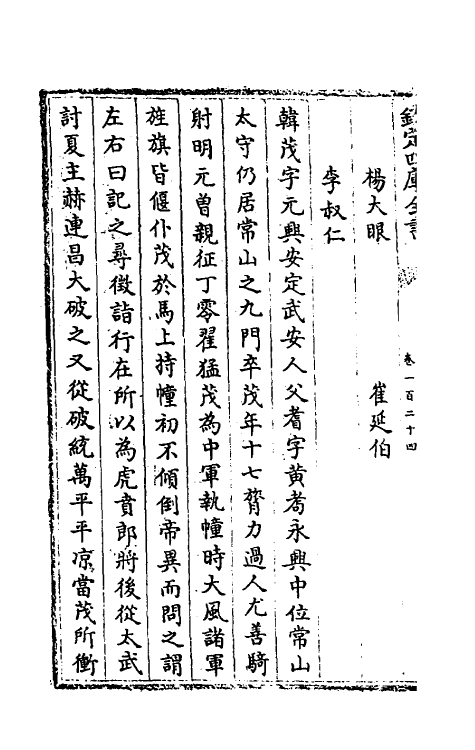 欽定四庫全書
卷一百二十四
楊大眼 崔延伯
李叔仁
韓茂字元興安定武安人父耆字黄耉永興中位常山
太守仍居常山之九門卒茂年十七膂力過人尤善騎
射明元曽親征丁零翟猛茂為中軍執幢時大風諸軍
旌旗皆偃仆茂於馬上持幢初不傾倒帝異而問之謂
左右曰記之尋徵詣行在所以為虎賁郎將後從太武
討夏主赫連昌大破之又從破統萬平平凉當茂所衝